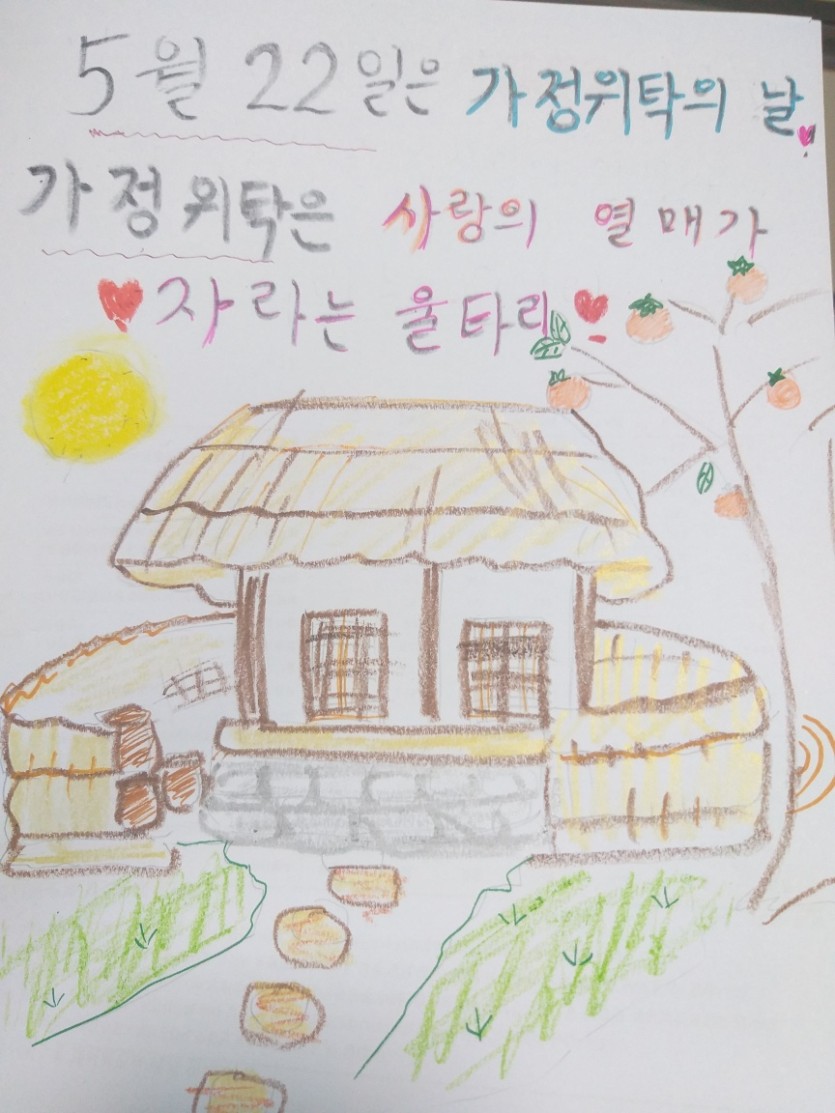 5월 22일은 가정위탁의 날
가정위탁은 사랑의 열매가
자라는 울타리